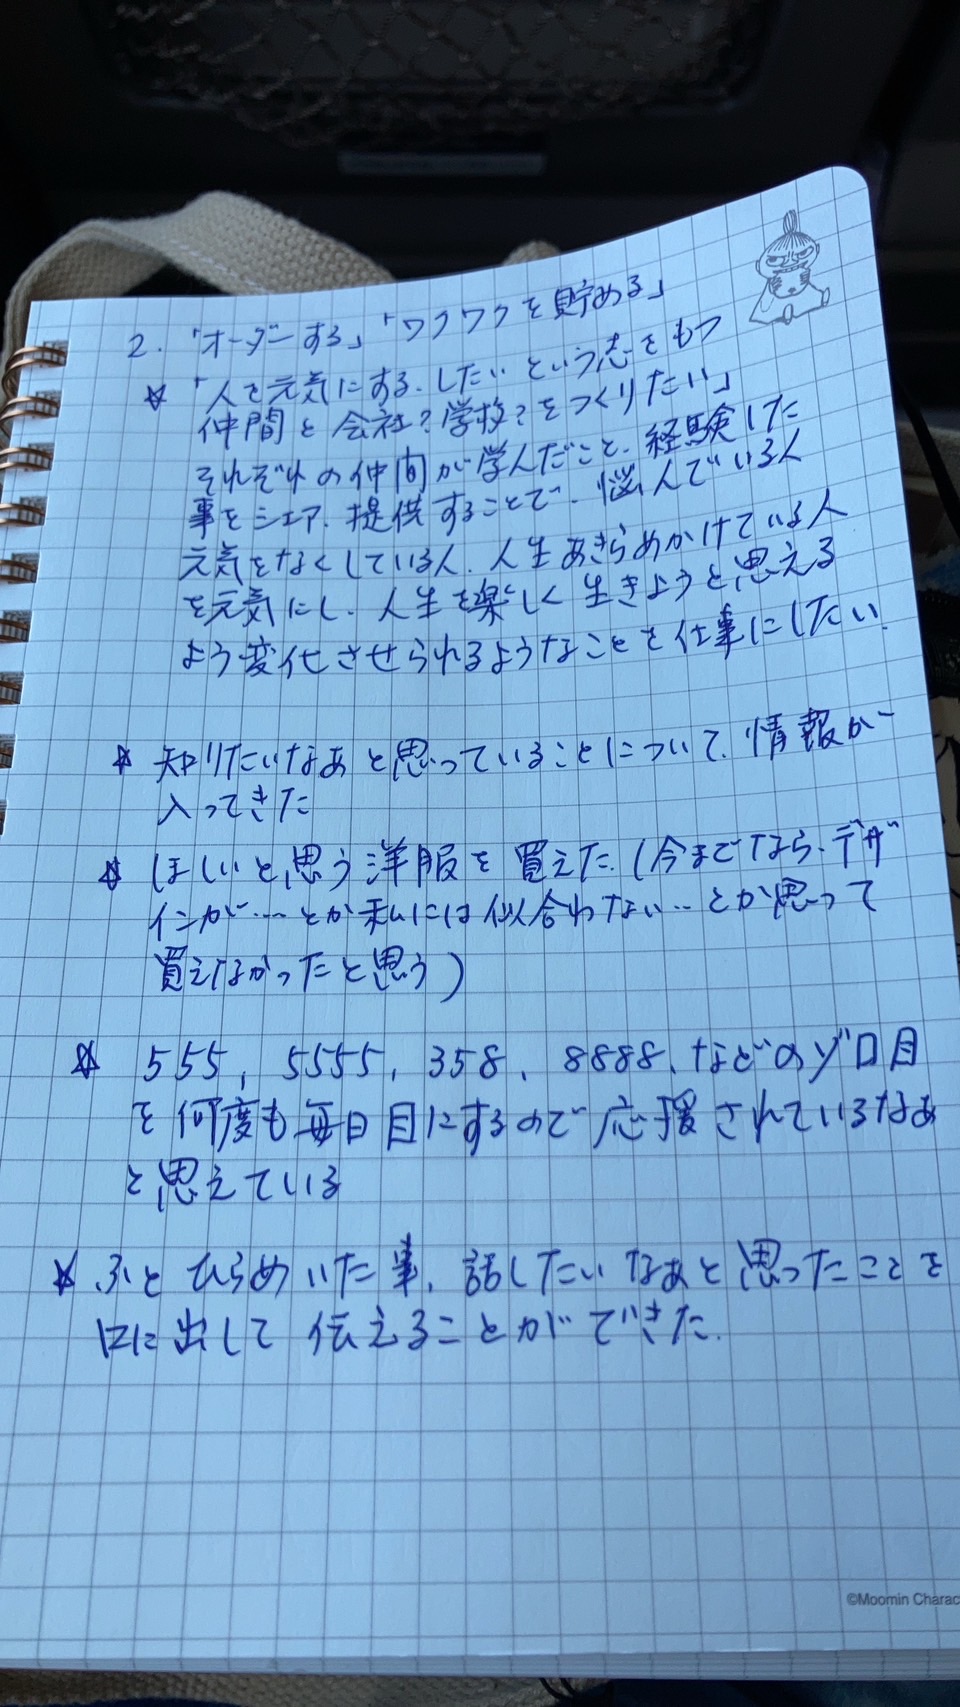 2. 「オーダーする」「ワクワクを貯める」
☆ 「人を元気にする.したいという志をもつ
仲間と会社?学校?をつくりたい」
それぞれの仲間が学んだこと、経験した
事をシェア、提供することで、悩んでいる人
元気をなくしている人、人生あきらめかけている人
を元気にし、人生を楽しく生きようと思える
よう変化させられるようなことを仕事にしたい.
☆ 知りたいなあと思っていることについて、情報が
入ってきた
☆ ほしいと思う洋服を買えた.(今までなら、デザ
インが…とか私には似合わない…とか思って
買えなかったと思う)
☆ 555, 5555, 358, 8888、などのゾロ目
を何度も毎日目にするので応援されているなあ
と思えている
☆ ふとひらめいた事、話したいなぁと思ったことを
口に出して伝えることができた.
©Moomin Charac